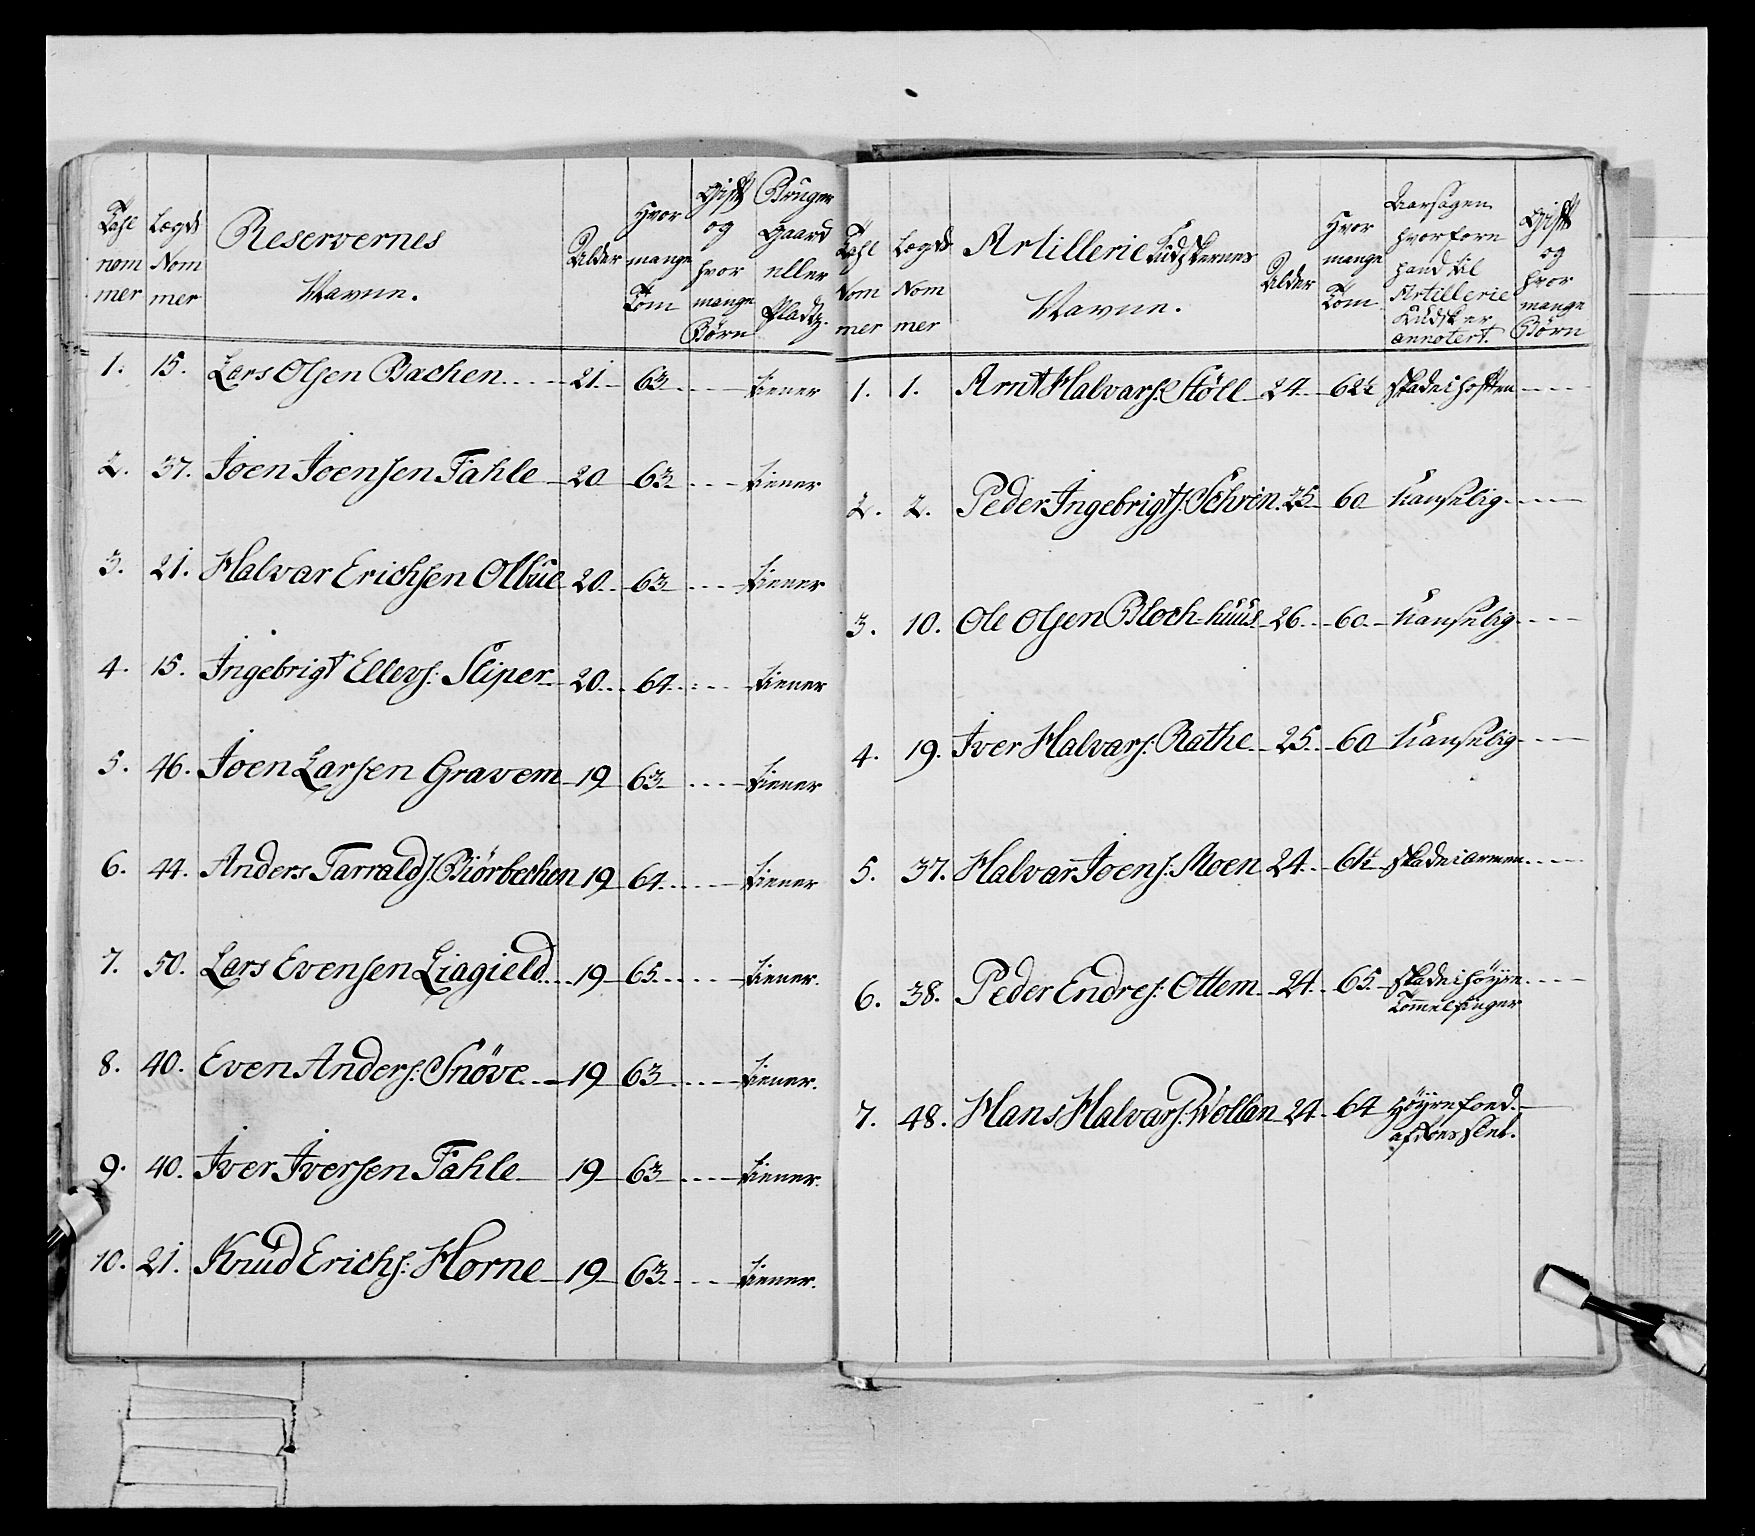 Tahl nom mer | Lægds Nom mer | Reservernes Navne. | Alder | Hvor mange Tom | Gift og hvor mange Børn | Bruger Gaard eller Pladtz.
1. 15. Lars Olsen Bachen 21 63 tiener
2. 37. Joen Joensen Fahle 20 63 tiener
3. 21. Halvar Erichsen Olbue 20 63 tiener
4. 15. Ingebrigt Ellevs: Sliper 20 64 tiener
5. 46. Joen Larsen Gravem 19 63 tiener
6. 44. Anders Tarralds: Biörbechen 19 64 tiener
7. 50. Lars Evensen Liagield 19 65 tiener.
8. 40. Even Anders: Snöve 19 63 tiener.
9. 40. Iver Iversen Fahle 19 63 tiener.
10. 21. Knud Erichs: Horne 19 63 tiener.
Tahl Nom mer | Lægds Nom mer | Artillerie Kudskernes Navne. | Alder | Hvor mange Tom | Aarsagen hvorforn hand til Artillerie Kudsk er annotert. | Gift og hvor mange Børn
1. 1. Arnt Halvars: Stöll 24 62½ skade i hoften
2. 2. Peder Ingebrigts: Schrön 25 60 uanselig
3. 10. Ole Olsen Bloch-huus 26 60 uanselig
4. 19. Iver Halvars: Rathe 25 60 uanselig
5. 37. Halvar Joens: Moen 24 64½ skade i armen
6. 38. Peder Endres: Ottem 24 65 skade i höyre
Tommelfinger
7. 48. Hans Halvars: Wollan 24 64 Höyre haand